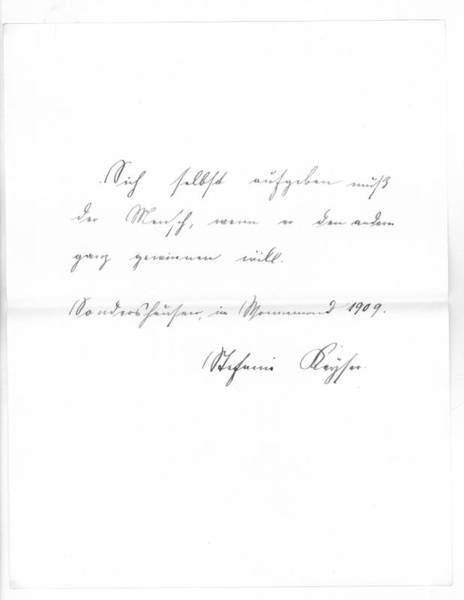 Sich selbst aufgeben muß
der Mensch, wenn er den andern
ganz gewinnen will.
Sondershausen, im Wonnemond 1909.
Stefanie Keyser